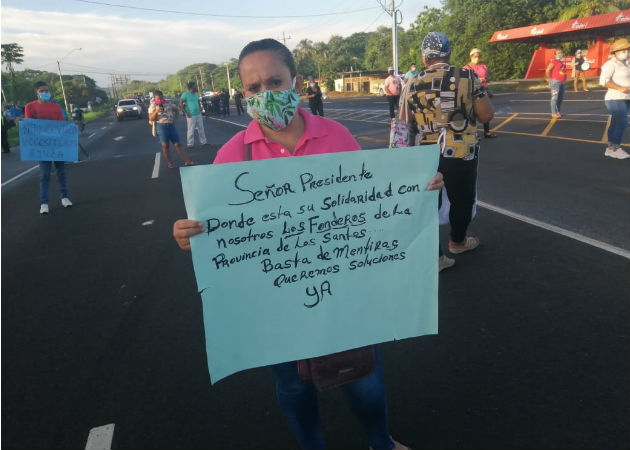 SEÑOR PRESIDENTE
Donde esta su Solidaridad con
nosotros Los Fonderos de La
Provincia de Los Santos...
Basta de Mentiras
queremos soluciones
YA